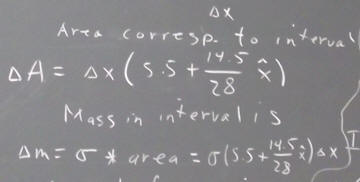 Δx
Area corresp. to interval
ΔA = Δx(5.5 + 14.5/28 x̂)
Mass in interval is
Δm = σ * area = σ(5.5 + 14.5/28 x̂)Δx